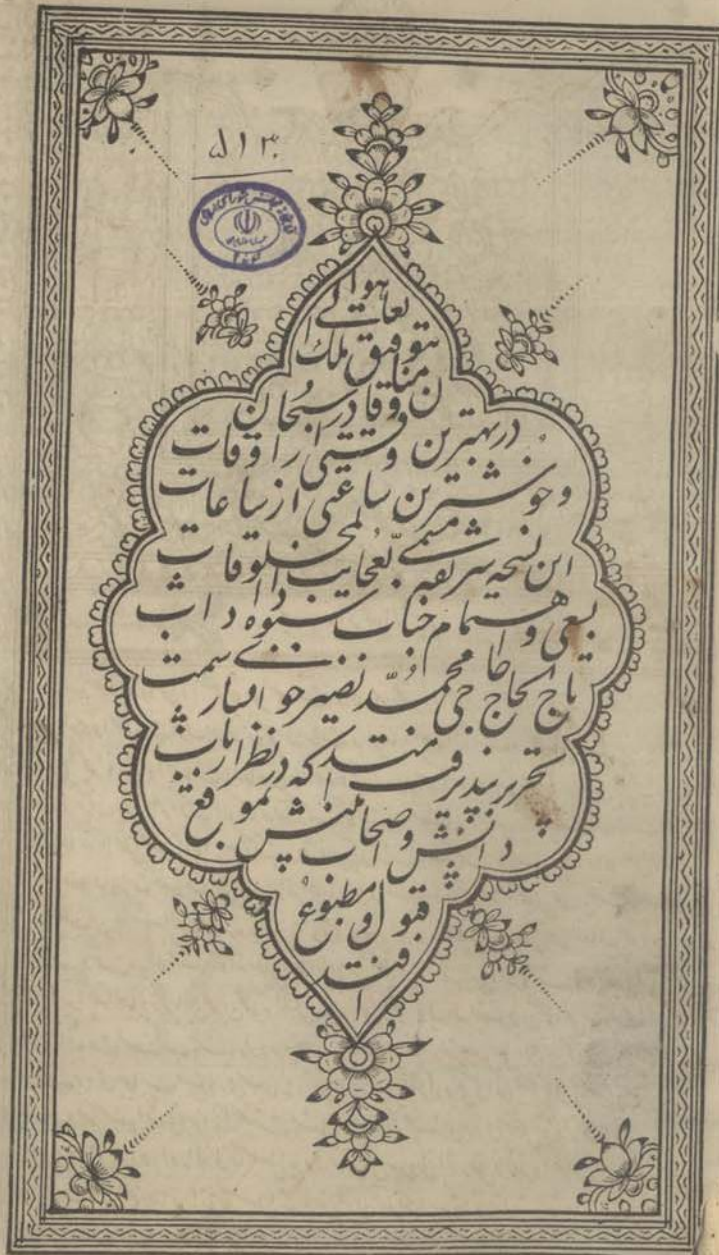 ۵۱۳۰
هوا
تعالی
بتوفیق ملک ا
لمنان و قادر سبحان
در بهترین وقتی از اوقات
و خوشترین ساعتی از ساعات
این نسخه شریفه مسمی بعجایب المخلوقات
بسعی و اهتمام جناب ستوده اداب
تاج الحاج حاجی محمد نصیر خوانساری سمت
تحریر پذیرفت که در نظر ارباب
دانش و اصحاب بینش موقع
قبول و مطبوع
افتد